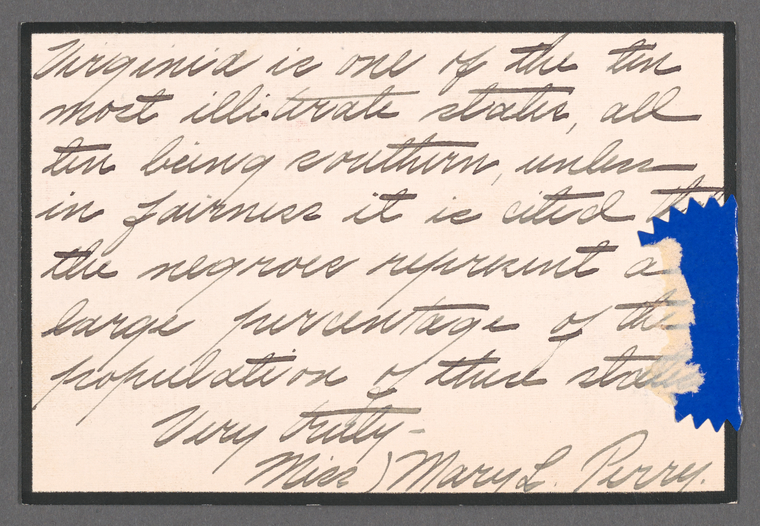 Virginia is one of the ten
most illiterate states, all
ten being southern, unless
in fairness it is cited
the negroes represent a
large percentage of the
population of these states
Very truly -
Miss) Mary L. Perry.